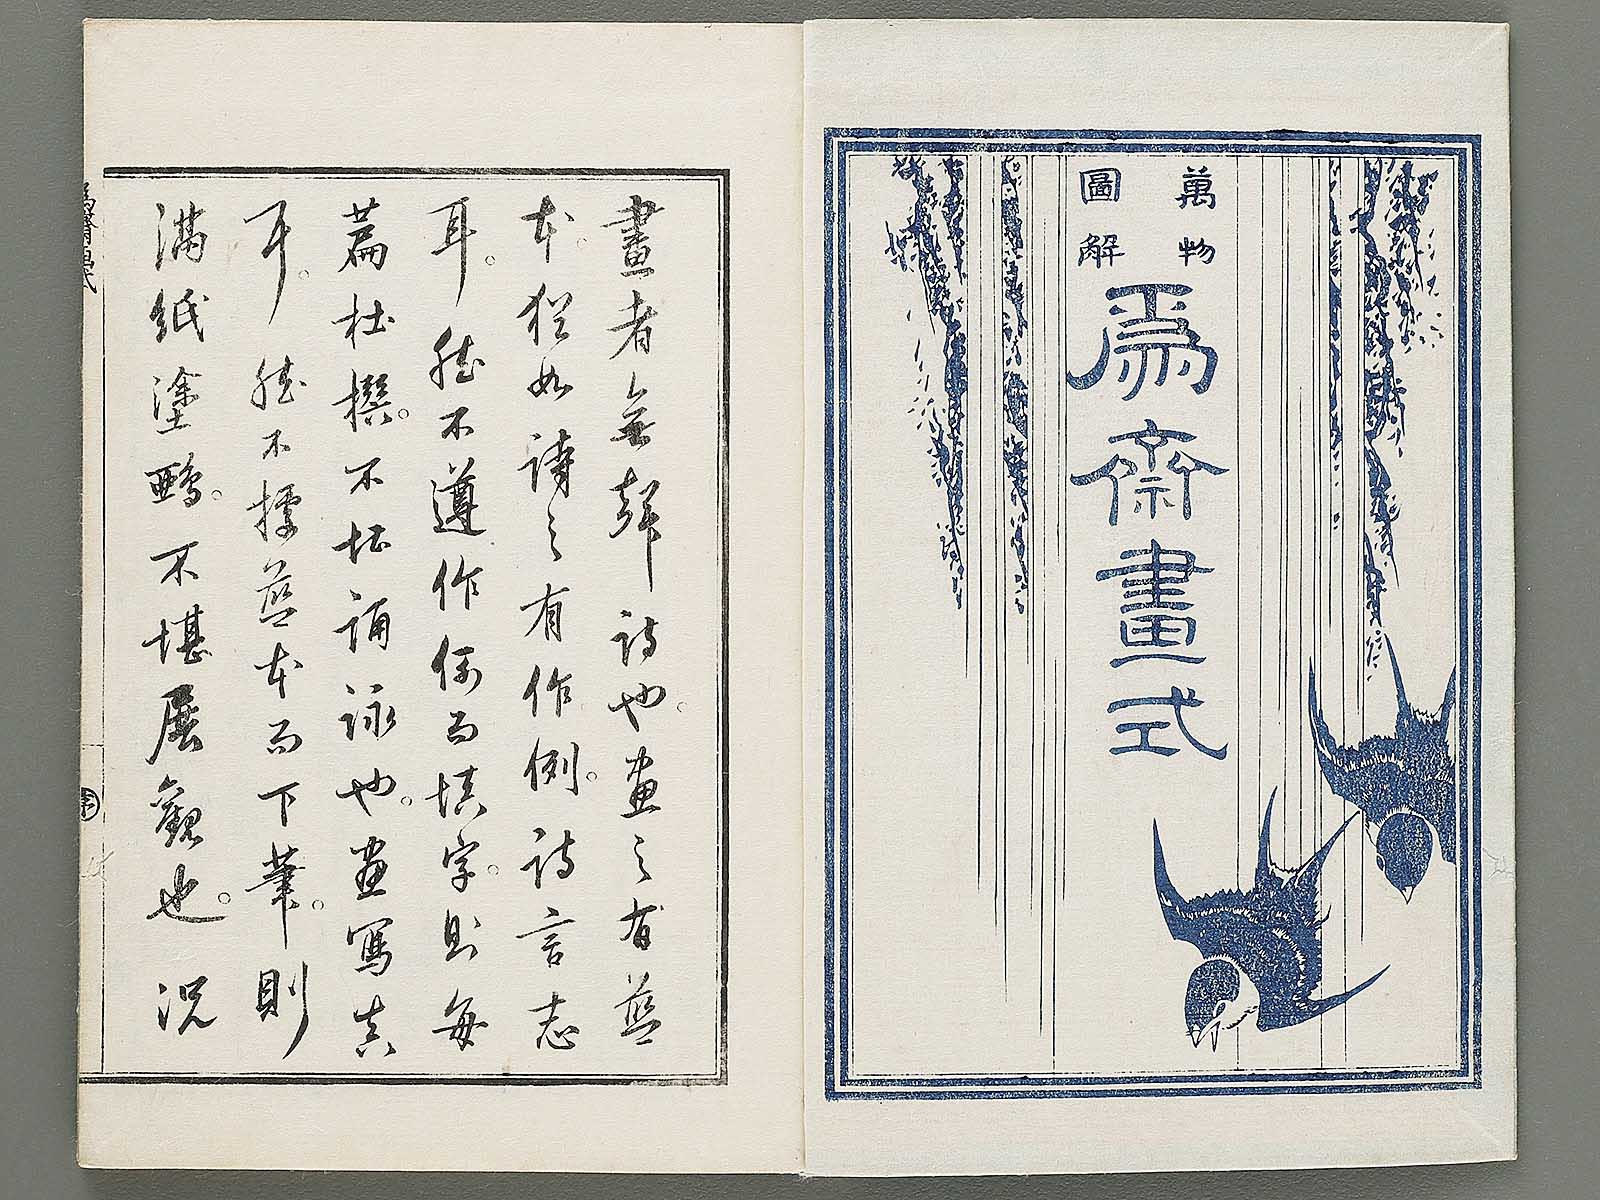 萬物
圖解
爲齋畫式
畫者無聲詩也。畫之有藍
本。猶如詩之有作例。詩言志
耳。然不遵作例而填字。則每
篇杜撰。不堪誦詠也。畫寫真
耳。然不據藍本而下筆。則
滿紙塗鴉。不堪展觀也。況
爲齋画式
序